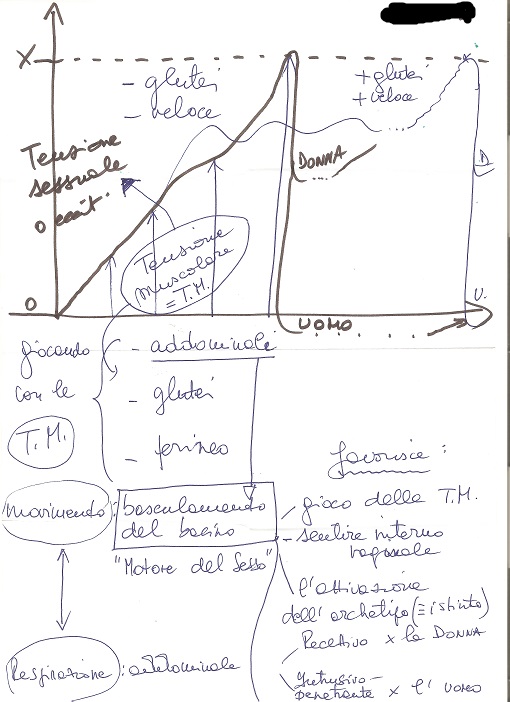 X
- glutei
- veloce
+ glutei
+ veloce
Tensione
sessuale
DONNA
D
Tensione
muscolare
= T.M.
O
U.
UOMO
giocando
con le
T.M.
- addominale
- glutei
- perineo
favorisce:
movimento: basculamento
del bacino
"Motore del Sesso"
gioco delle T.M.
- sentire interno
vaginale
l'attivazione
dell'archetipo (≡ istinto)
Recettivo x la DONNA
Intrusivo-
penetrante x l'UOMO
Respirazione: addominale